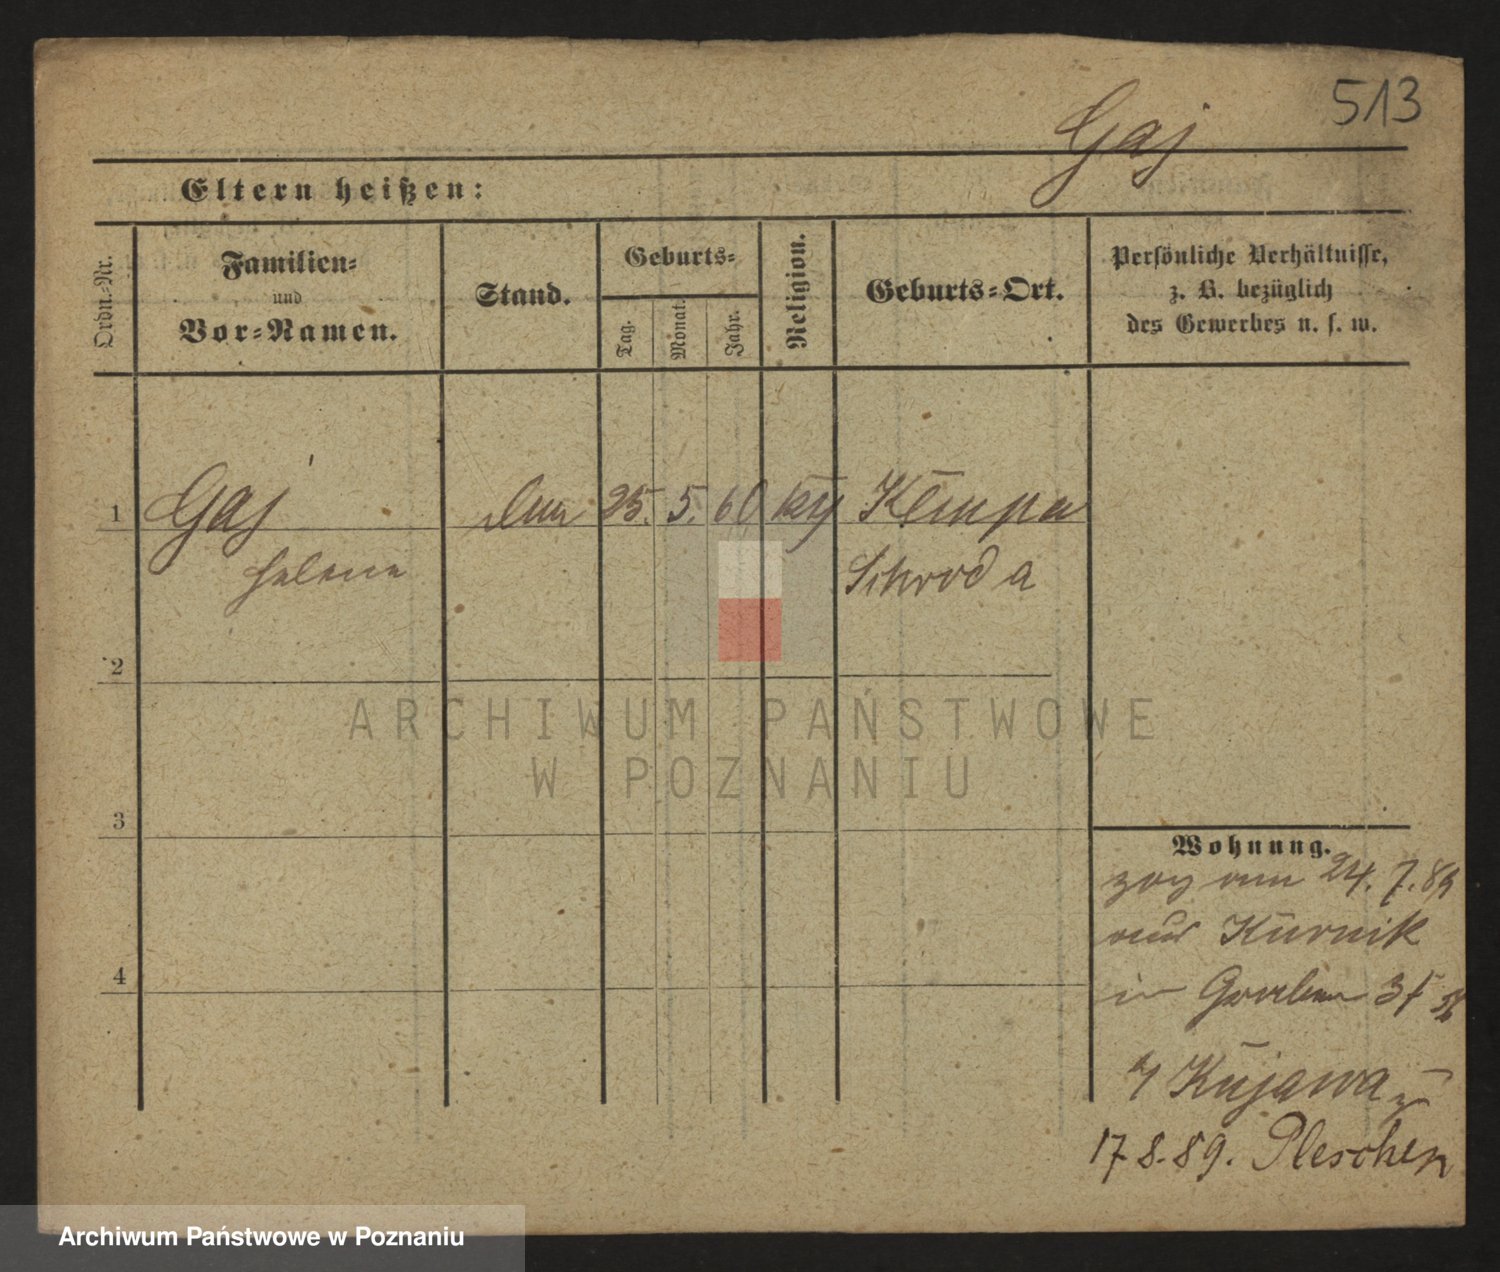 513
Gaj
Eltern heißen:
Ordn.-Nr.
Familien-
und
Vor-Namen.
Stand.
Geburts-
Tag.
Monat.
Jahr.
Religion.
Geburts-Ort.
Persönliche Verhältnisse,
z. B. bezüglich
des Gewerbes u. s. w.
1 Gaj 25. 5. 60 Kempa
Helene Schroda
2
3
4
Wohnung.
zog am 24. 7. 89
aus Kurnik
in Graben
Kujawa
17.8.89. Pleschen
ARCHIWUM PAŃSTWOWE
W POZNANIU
Archiwum Państwowe w Poznaniu